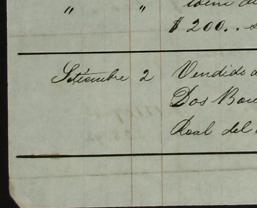 " "
$200..
Setiembre 2 Vendido
Dos
Real del